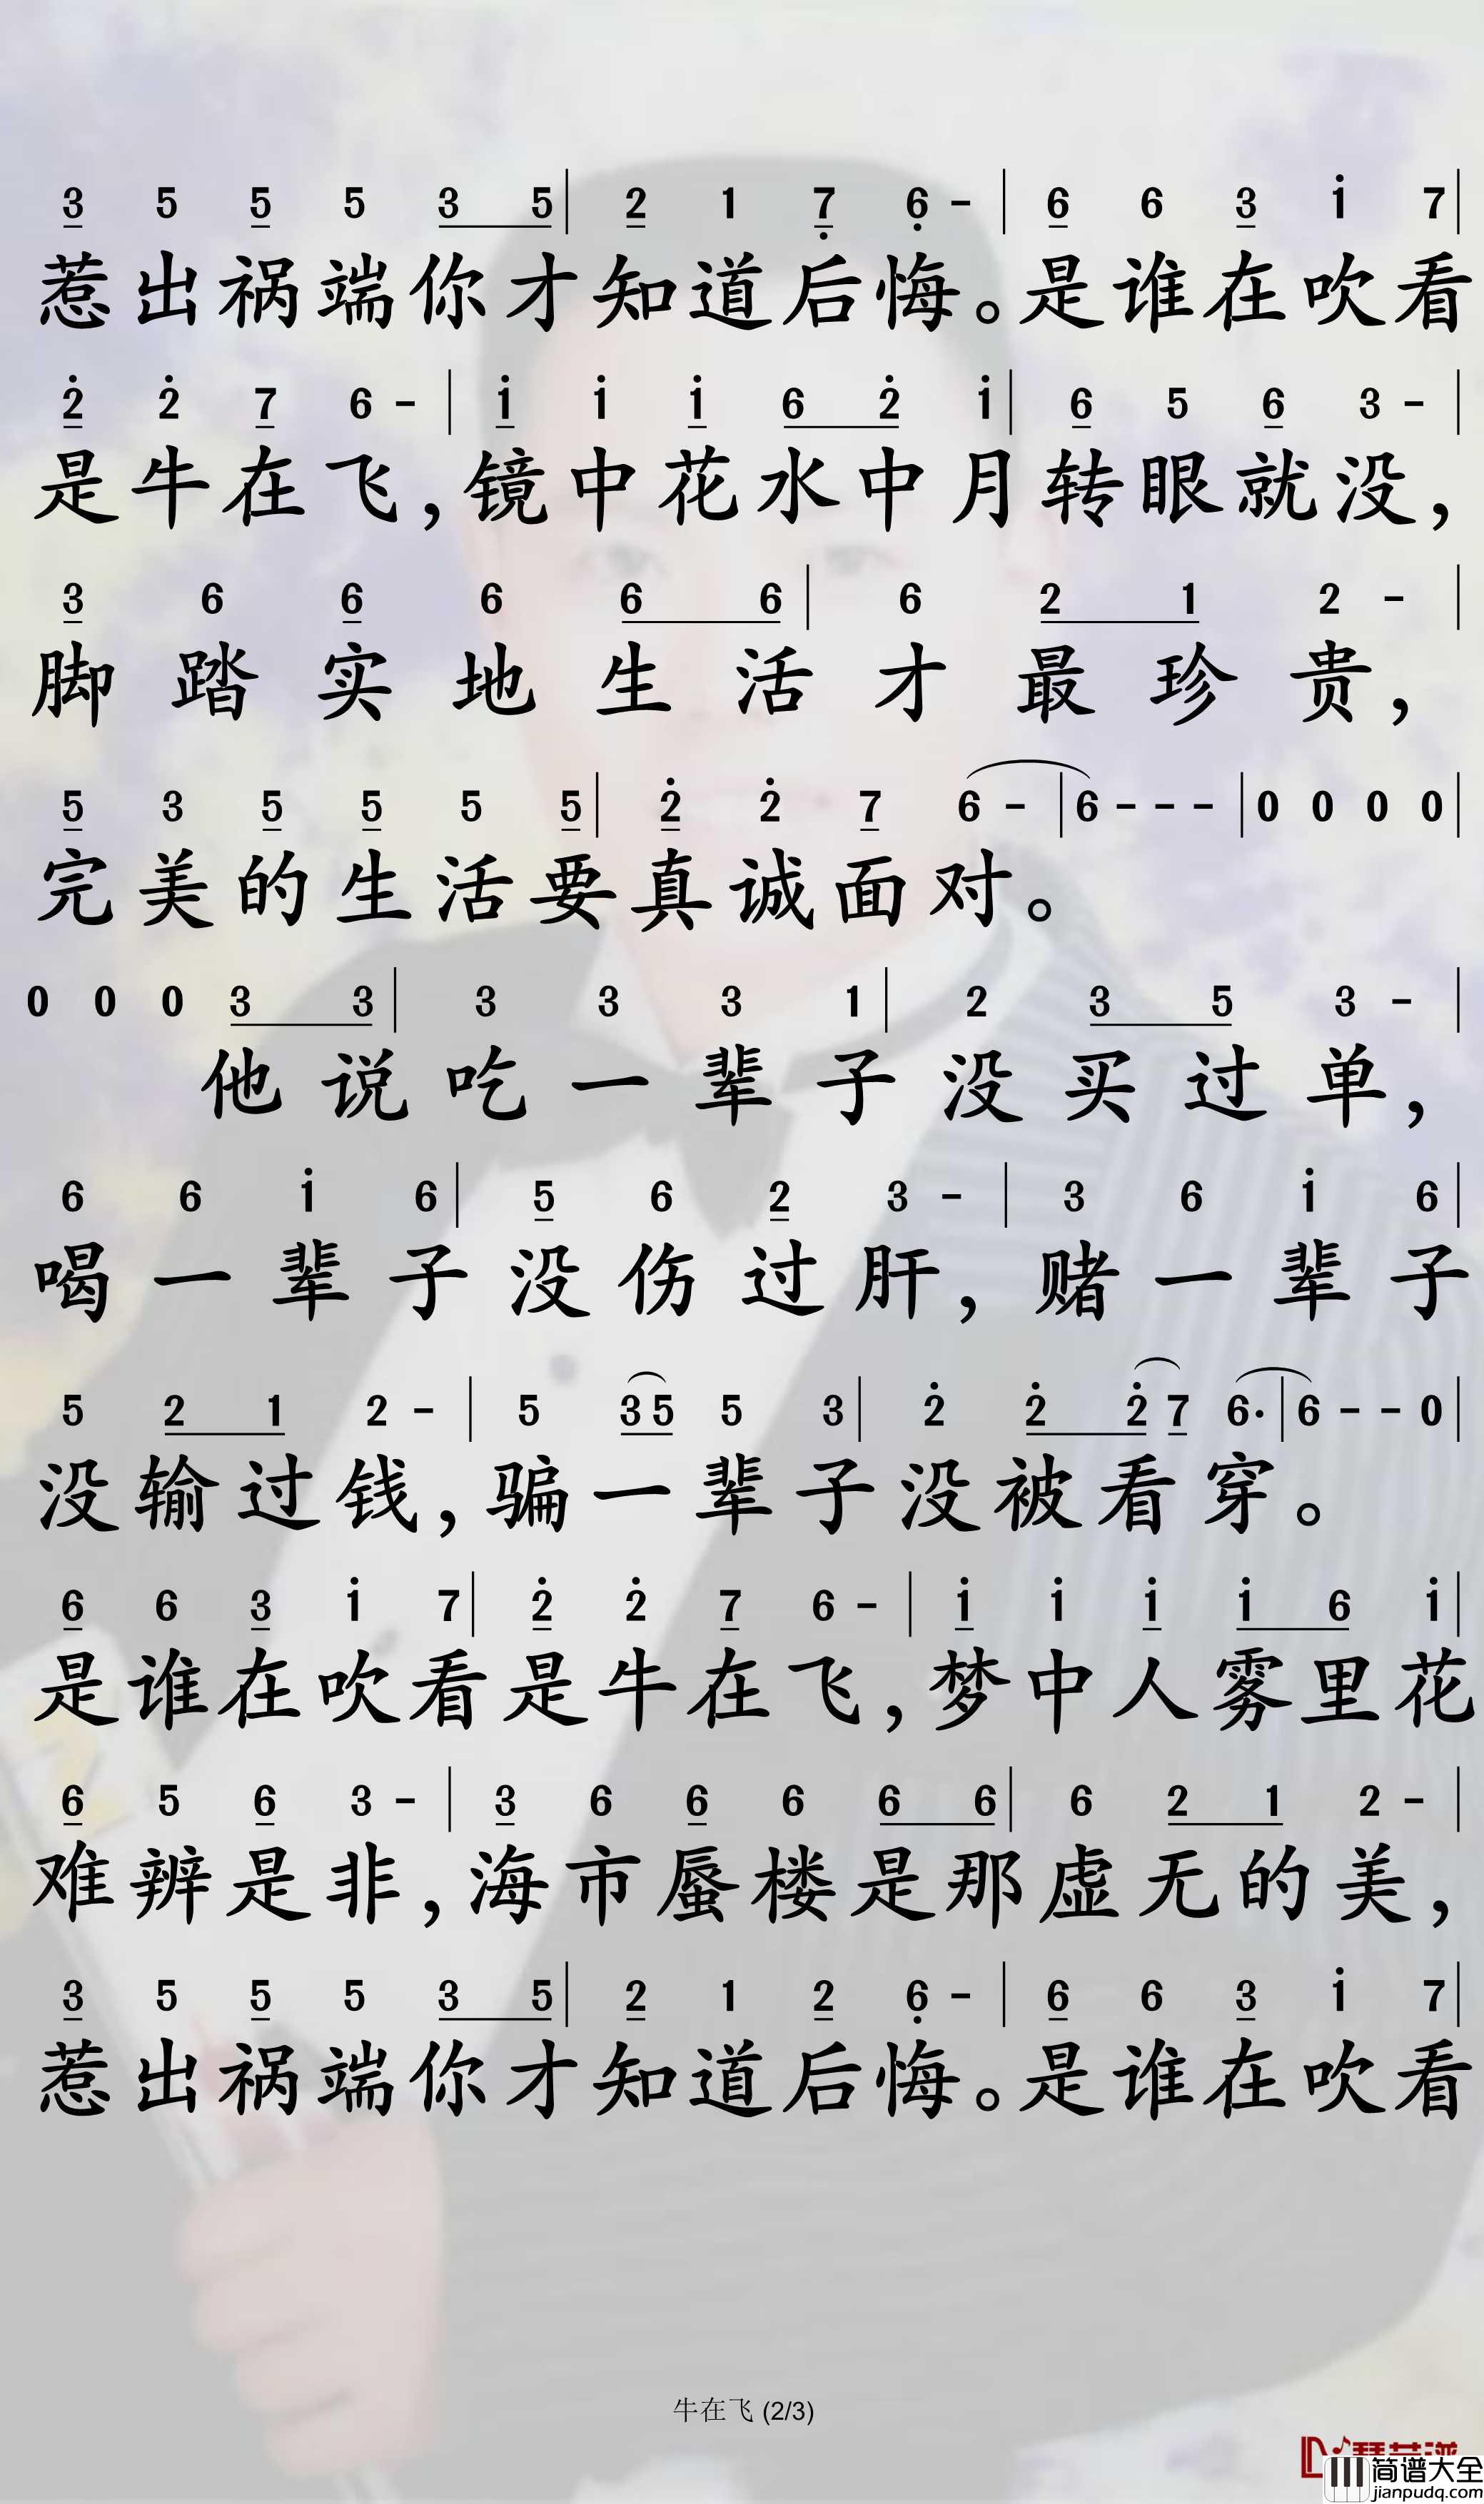 3 5 5 5 3 5 | 2 1 7 6 - | 6 6 3 1 7 |
惹出祸端你才知道后悔。是谁在吹看
2 2 7 6 - | 1 1 1 6 2 1 | 6 5 6 3 - |
是牛在飞,镜中花水中月转眼就没,
3 6 6 6 6 6 | 6 2 1 2 - |
脚踏实地生活才最珍贵,
5 3 5 5 5 5 | 2 2 7 6 - | 6 - - - | 0 0 0 0 |
完美的生活要真诚面对。
0 0 0 3 3 | 3 3 3 1 | 2 3 5 3 - |
他说吃一辈子没买过单,
6 6 1 6 | 5 6 2 3 - | 3 6 1 6 |
喝一辈子没伤过肝,赌一辈子
5 2 1 2 - | 5 3 5 5 3 | 2 2 2 7 6· | 6 - - 0 |
没输过钱,骗一辈子没被看穿。
6 6 3 1 7 | 2 2 7 6 - | 1 1 1 1 6 1 |
是谁在吹看是牛在飞,梦中人雾里花
6 5 6 3 - | 3 6 6 6 6 6 | 6 2 1 2 - |
难辨是非,海市蜃楼是那虚无的美,
3 5 5 5 3 5 | 2 1 2 6 - | 6 6 3 1 7 |
惹出祸端你才知道后悔。是谁在吹看
牛在飞 (2/3)
简谱大全
jianpudq.com